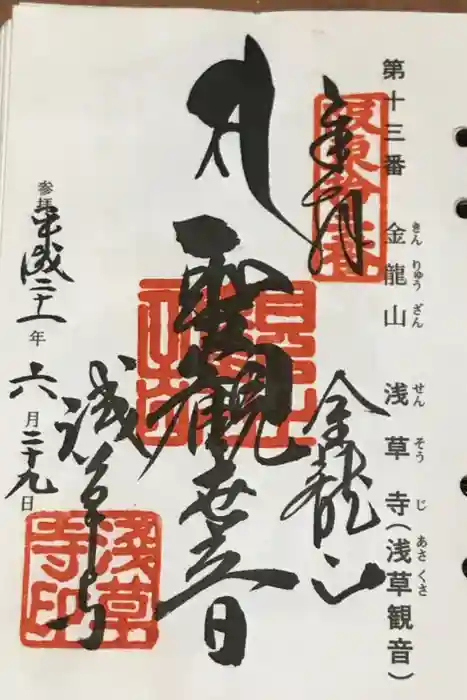 第十三番 金龍山 浅草寺(浅草観音)
きん りゅう ざん せん そう じ あさ くさ
奉拝
坂東拾三番
金龍山
聖観世音
浅草寺
浅草寺印
参拝 平成二十一年 六月二十九日